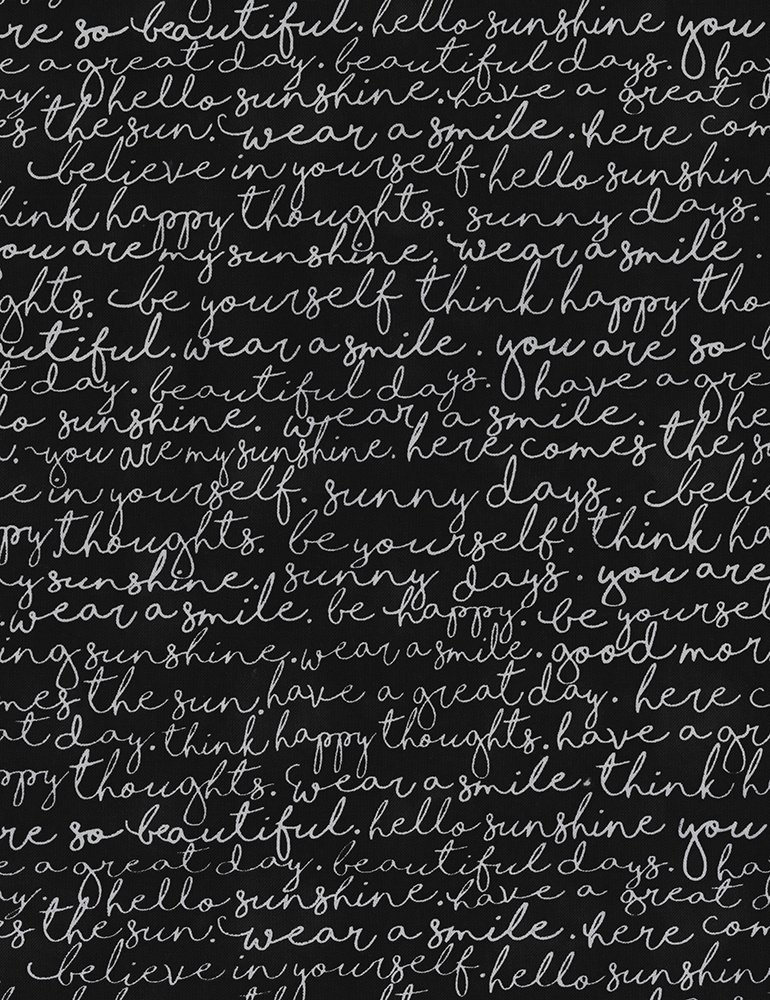 re so beautiful. hello sunshine you
e a great day. beautiful days. hav
ay. hello sunshine. have a great d
es the sun. wear a smile. here com
believe in yourself. hello sunshine
hink happy thoughts. sunny days.
ou are my sunshine. wear a smile.
ghts. be yourself think happy tho
utiful. wear a smile. you are so b
t day. beautiful days. have a grea
lo sunshine. wear a smile. he
n. you are my sunshine. here comes the su
e in yourself. sunny days. belie
py thoughts. be yourself. think ha
y sunshine. sunny days. you are
. wear a smile. be happy. be yoursel
ing sunshine. wear a smile. good mor
mes the sun. have a great day. here c
at day. think happy thoughts. have a gr
ppy thoughts. wear a smile. think h
re so beautiful. hello sunshine you
e a great day. beautiful days. ha
ay. hello sunshine. have a great d
es the sun. wear a smile. here com
believe in yourself. hello sunshine